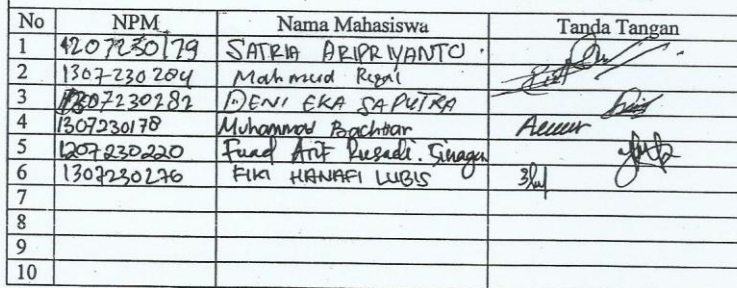 No NPM Nama Mahasiswa Tanda Tangan
1 1207230179 SATRIA ARIPRIYANTO
2 1307230204 Mahmud Rizal
3 1307230282 DENI EKA SAPUTRA
4 1307230178 Muhammad Bachtiar
5 1207230220 Fuad Arif Rusadi. Sinaga
6 1307230276 FIKI HANAFI LUBIS
7
8
9
10